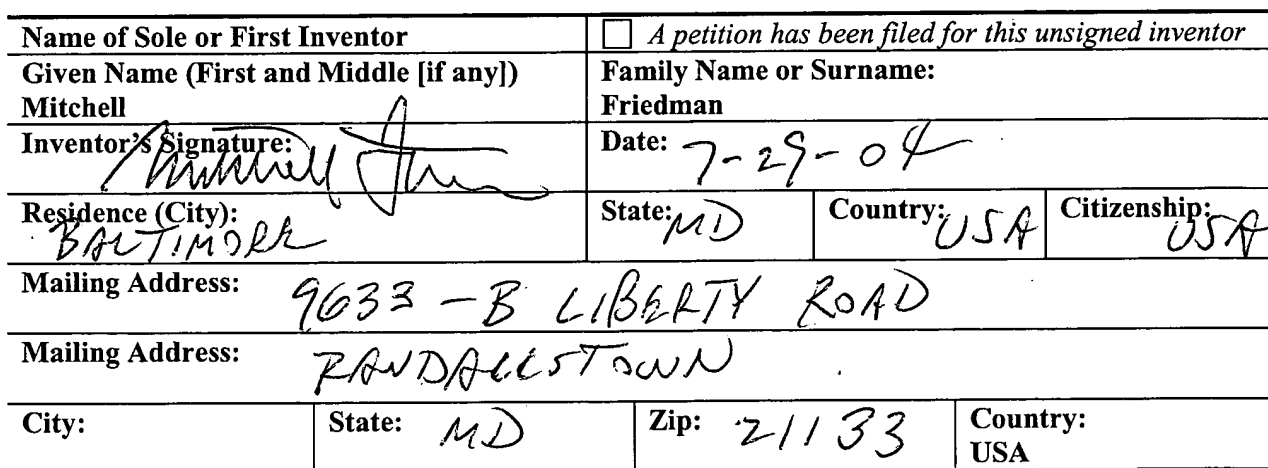 Name of Sole or First Inventor ☐ A petition has been filed for this unsigned inventor
Given Name (First and Middle [if any]) Family Name or Surname:
Mitchell Friedman
Inventor's Signature: Mitchell Date: 7-29-04
Residence (City): State: MD Country: USA Citizenship: USA
BALTIMORE
Mailing Address: 9633-B LIBERTY ROAD
Mailing Address: RANDALLSTOWN
City: State: MD Zip: 21133 Country:
USA